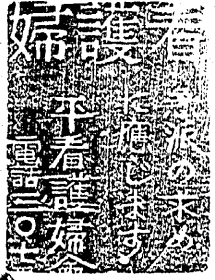 看護婦
の求め
に應じます
平看護婦會
電話三〇七